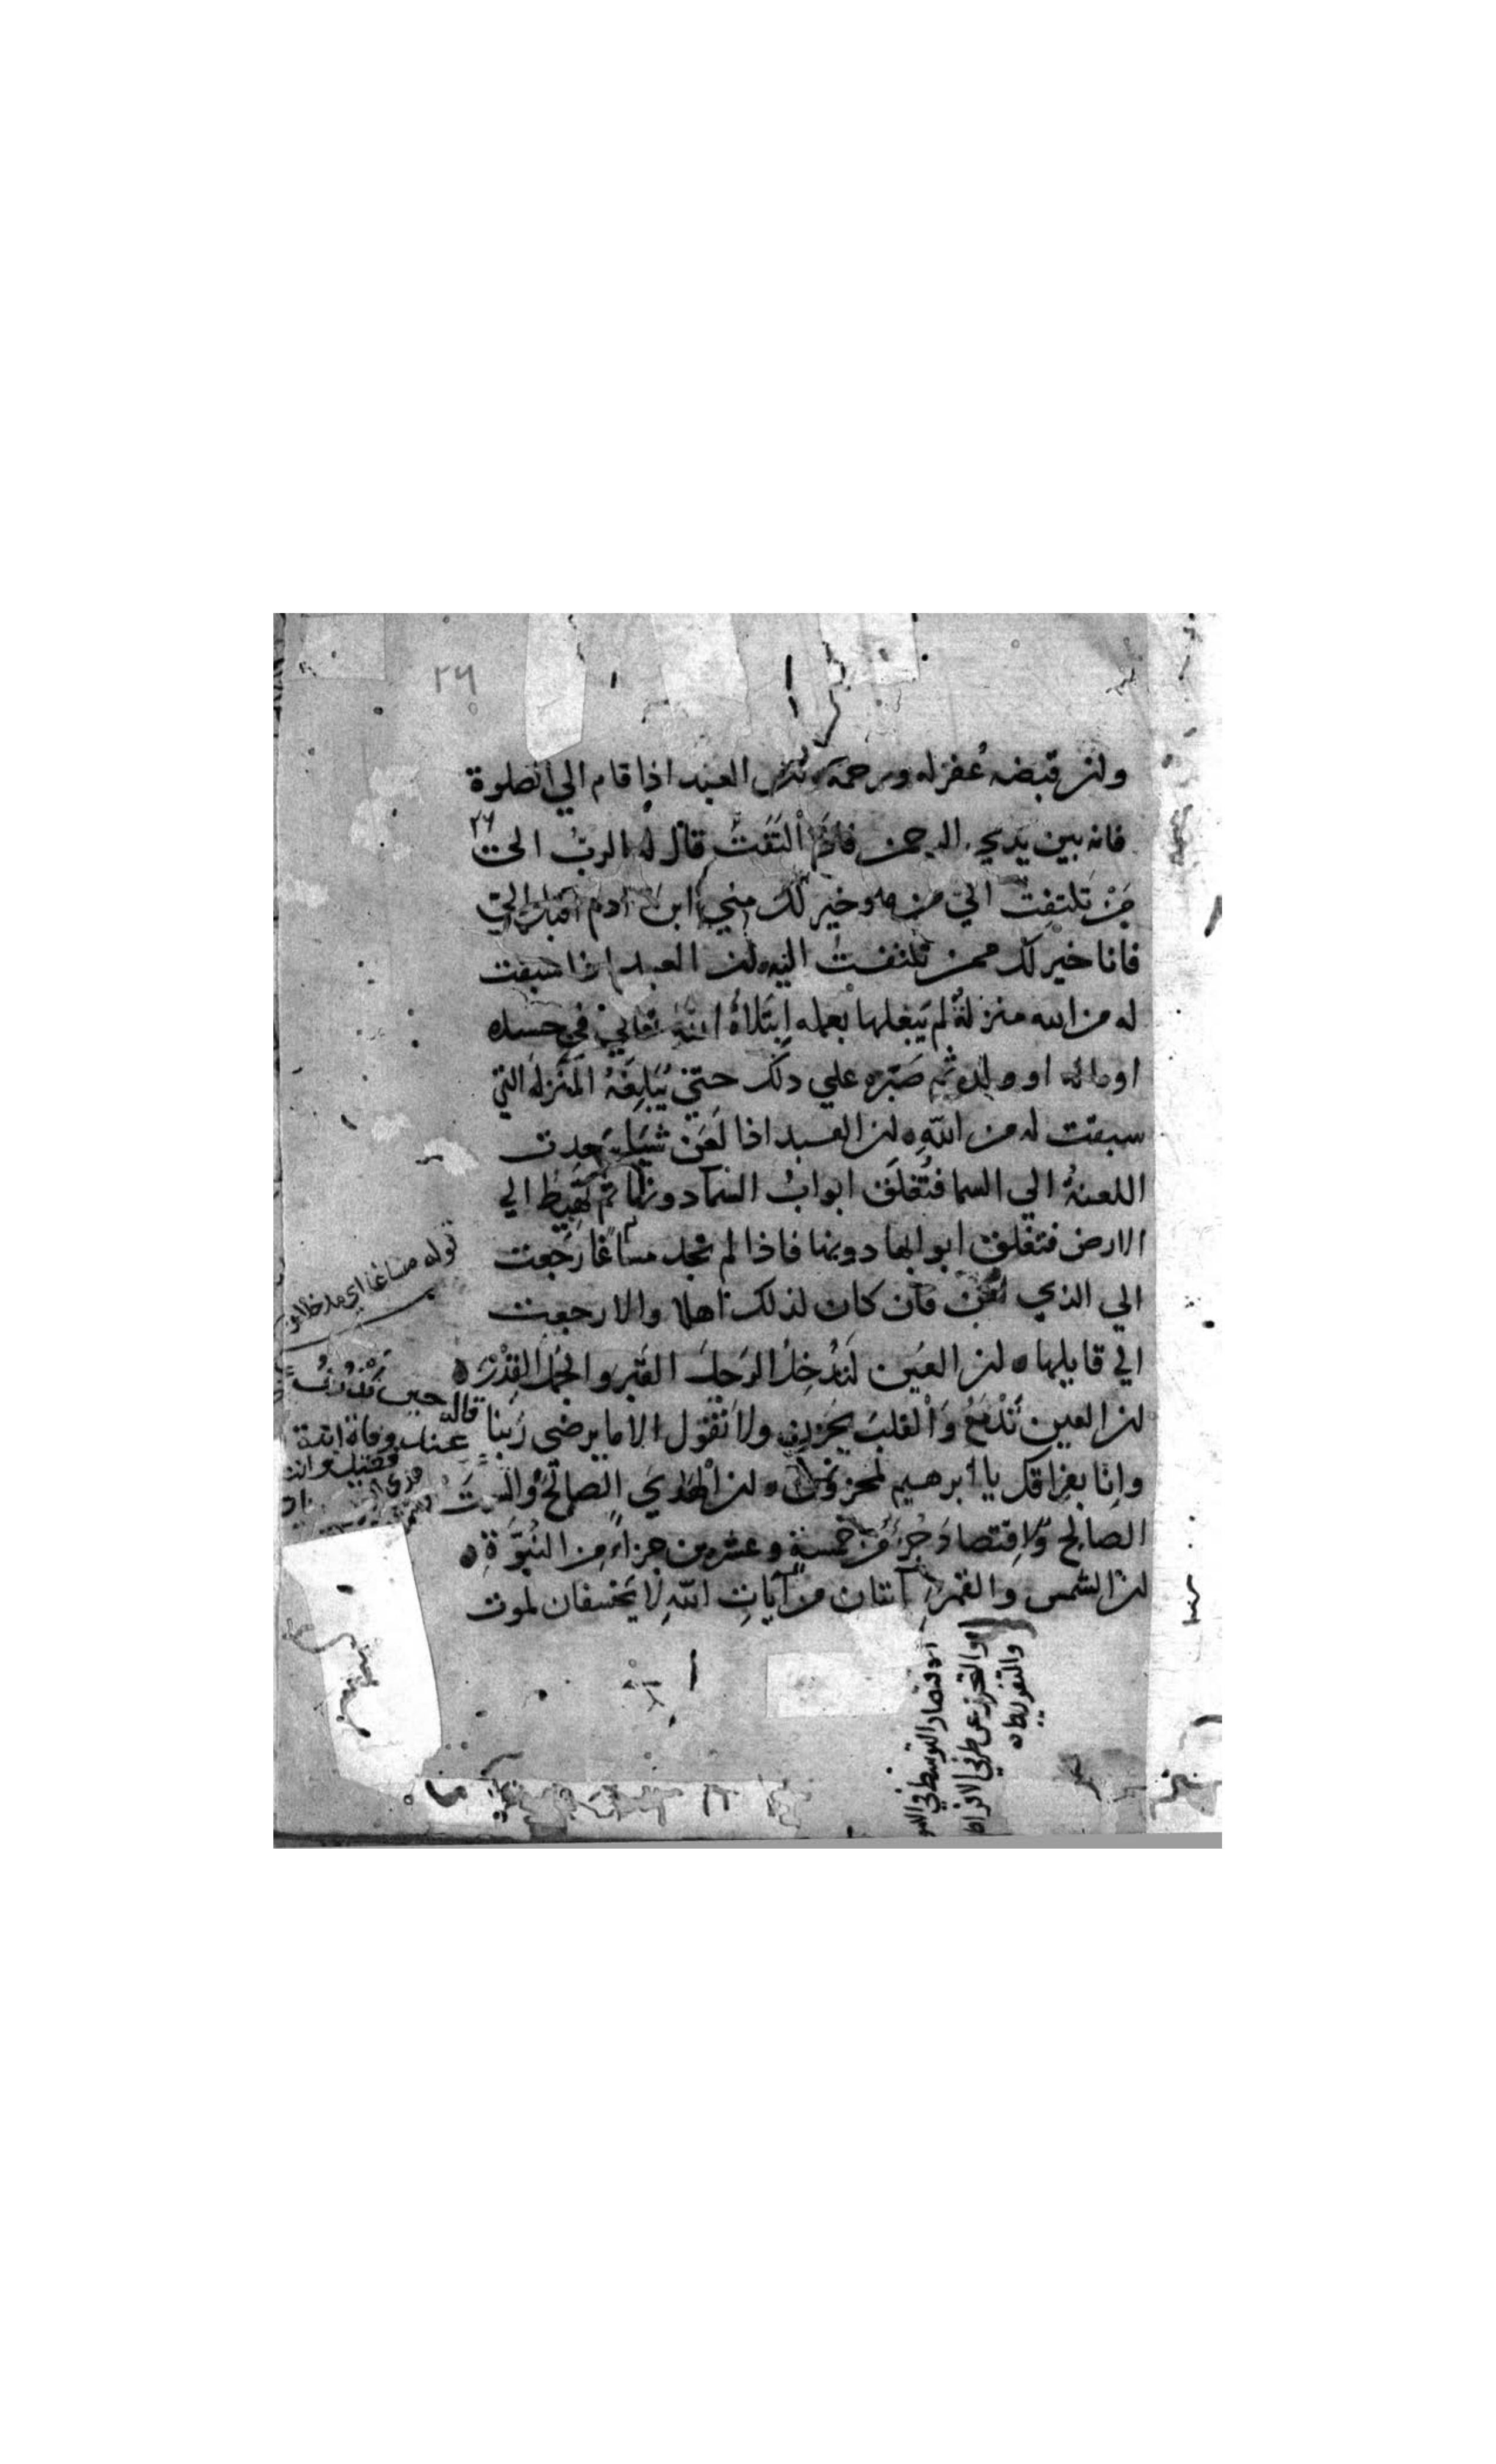 ٢٦
وان قبضه غفر له ورحمه ان العبد اذا قام الي الصلوة
فانه بين يدي الرحمن فاذا التَفَتَ قال له الرب الى
مَنْ تلتفِت الي من هو خير لك مني ابن ادم اقبل الي
فانا خير لك ممن تلتفت اليه ان العبد اذا سبقت
له من الله منزلة لم يَبْلغها بعمله ابتَلاهُ اللهُ تعالي في جسده
او ماله او ولده ثم صَبّره علي ذلك حتي يُبَلِغَهُ المنزلة التي
سبقت له من اللهِ ان العبد اذا لَعَن شيا صَعِدت
اللعنةُ الي السما فتُغلَق ابوابُ السما دونها ثم تَهبِطُ الي
الارض فتغلق ابوابها دونها فاذا لم تجد مساغا رَجَعت
الي الذي لُعِن فان كان لذلك اهلا والا رجعت
الي قايلها ان العَين لتُدخِلُ الرَجلَ القَبْر والجَمَل القِدْرَ
ان العين تَدْمَعُ وَالْقلبَ يحزن ولا نقول الا ما يرضي رَبنا
وانا بفراقك يا ابرهيم لمحزونون ان الهَدْيَ الصالحَ والسمتَ
الصالح والاِقتصادَ جُزءٌ من خمسة وعشرين جزاء مِن النُبُوّةِ
ان الشمس والقمرَ آيتان من آيَاتِ اللهِ لا يخسفان لموت
قوله مساغا اي مدخلا
قاله حين
عند وفاة ابنه
الاقتصاد التوسط في
والتحرز عن طرفي الافراط
والتفريط